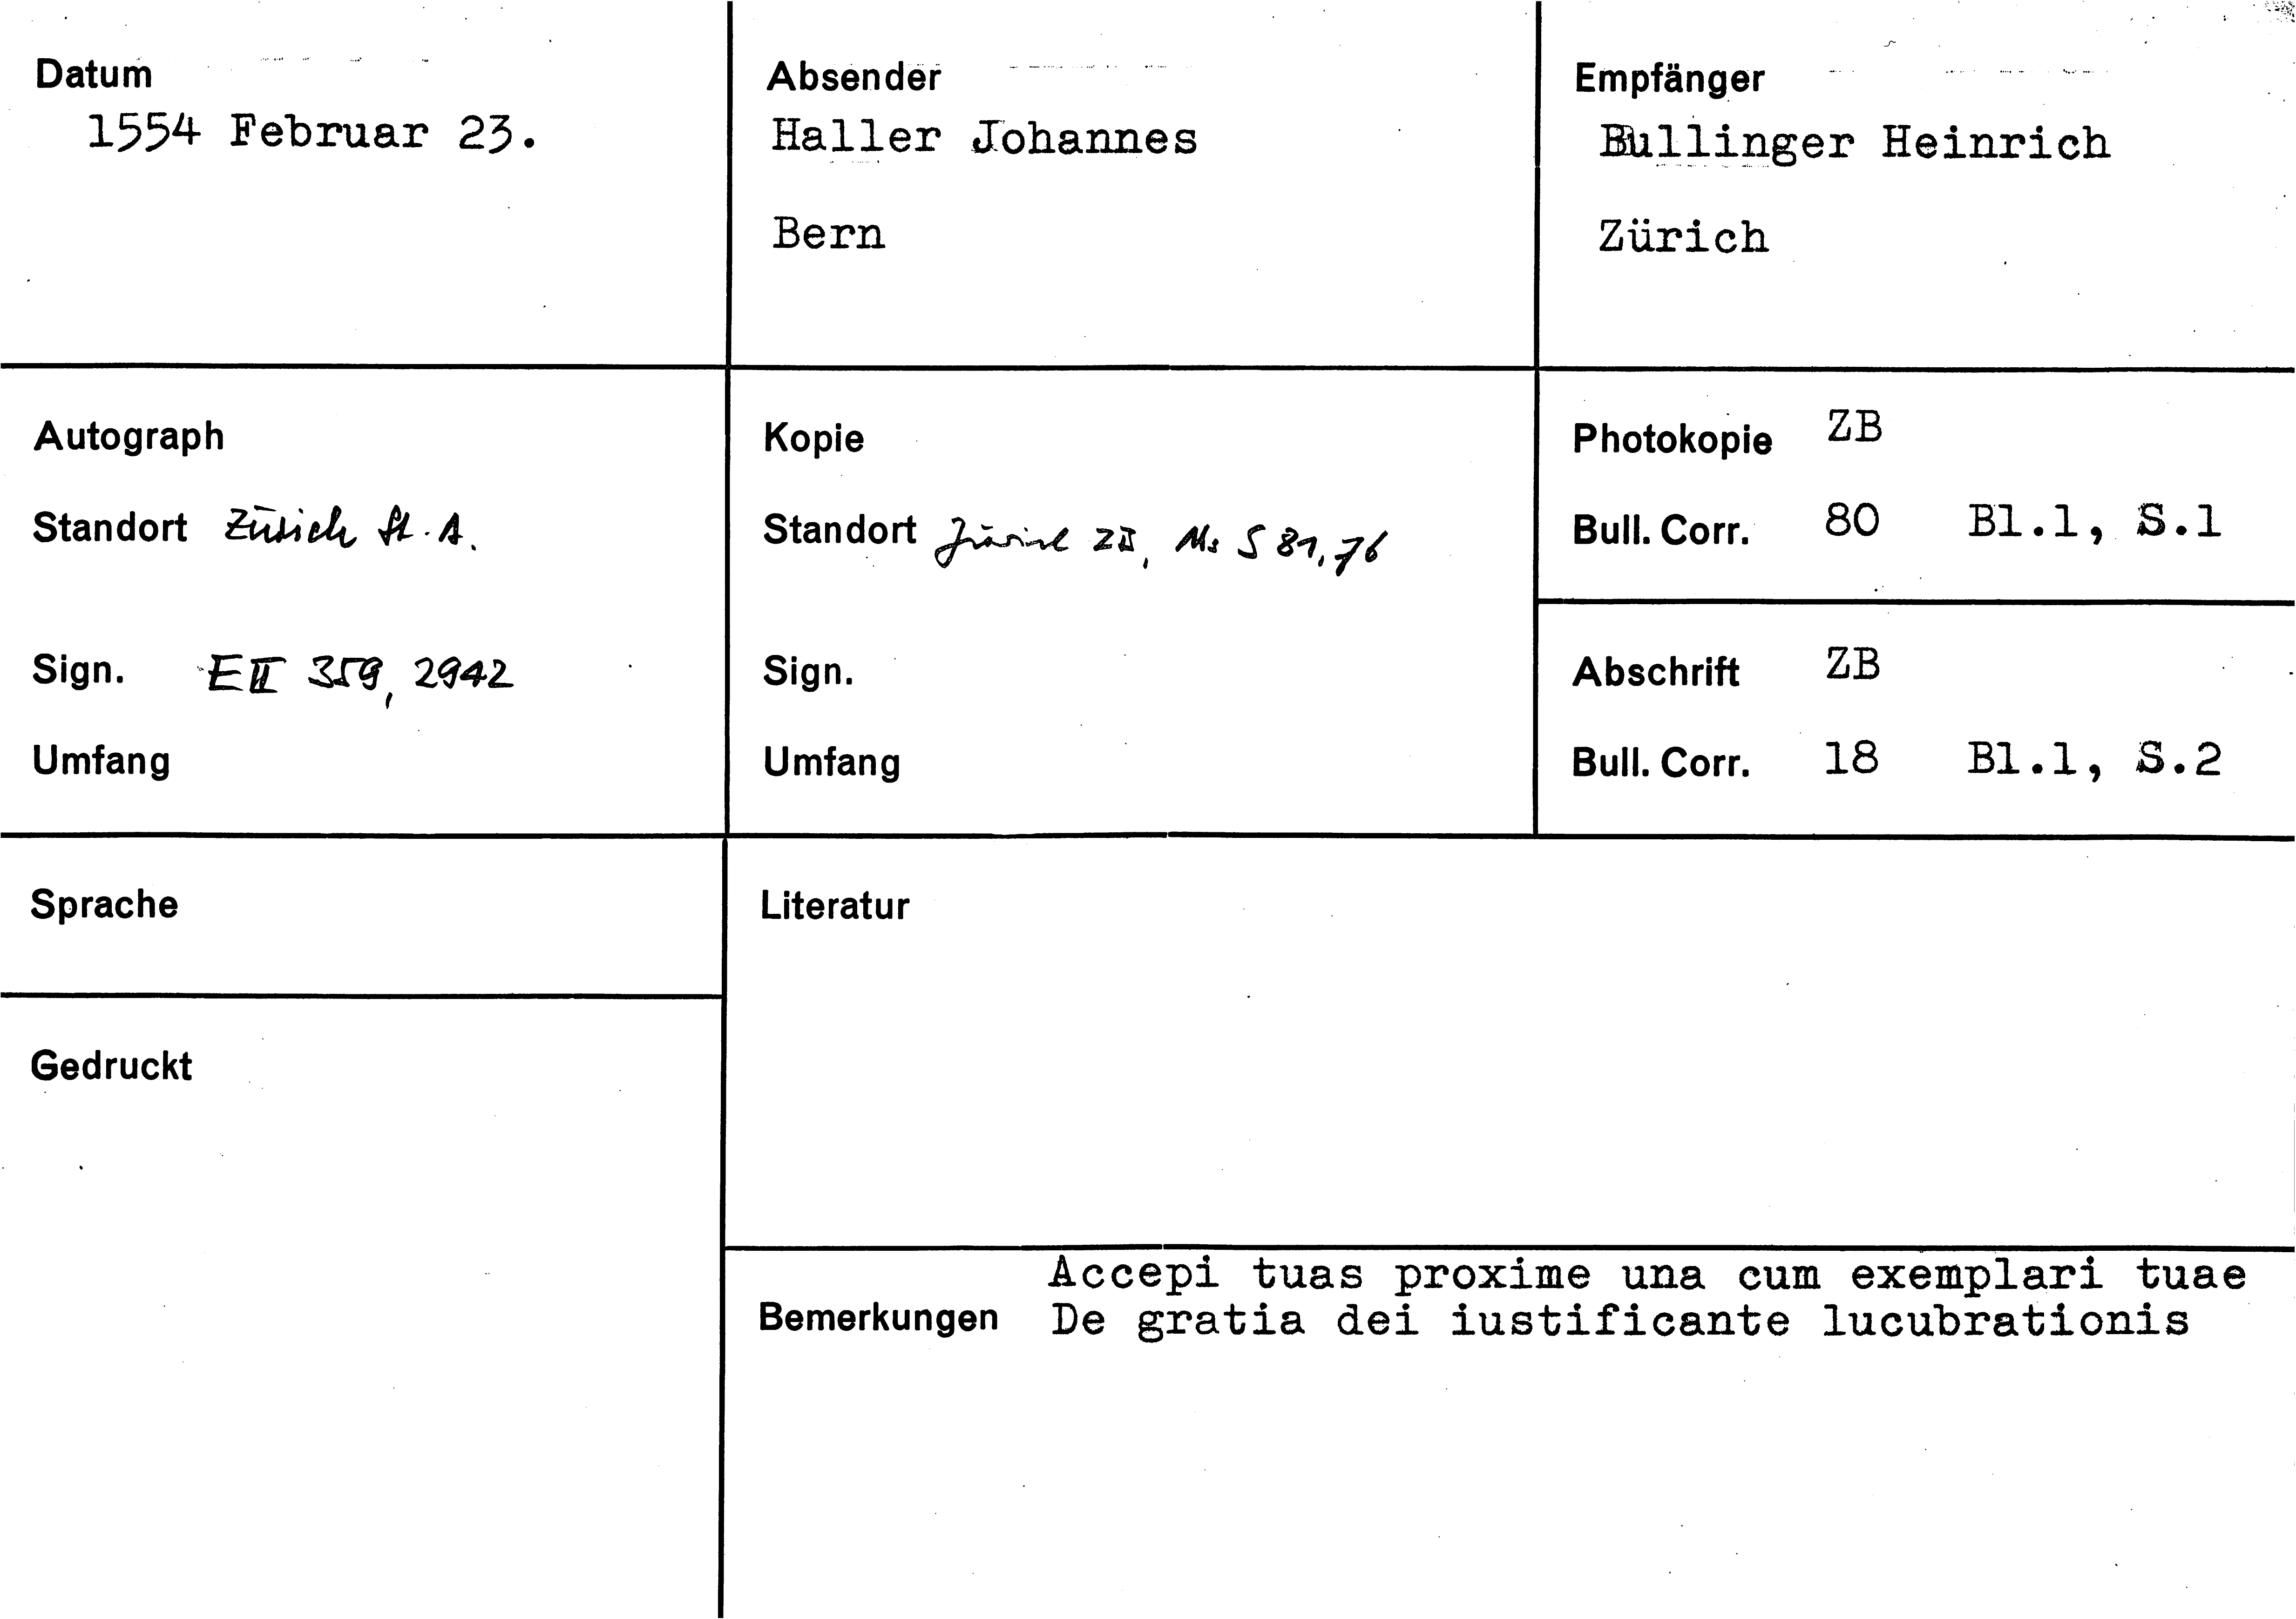 Datum
1554 Februar 23.
Absender
Haller Johannes
Bern
Empfänger
Bullinger Heinrich
Zürich
Autograph
Standort Zürich St. A.
Sign. E II 359, 2942
Umfang
Kopie
Standort Zürich ZB, Ms S 81, 76
Sign.
Umfang
Photokopie ZB
Bull. Corr. 80 Bl.1, S.1
Abschrift ZB
Bull. Corr. 18 Bl.1, S.2
Sprache
Gedruckt
Literatur
Accepi tuas proxime una cum exemplari tuae
Bemerkungen De gratia dei iustificante lucubrationis